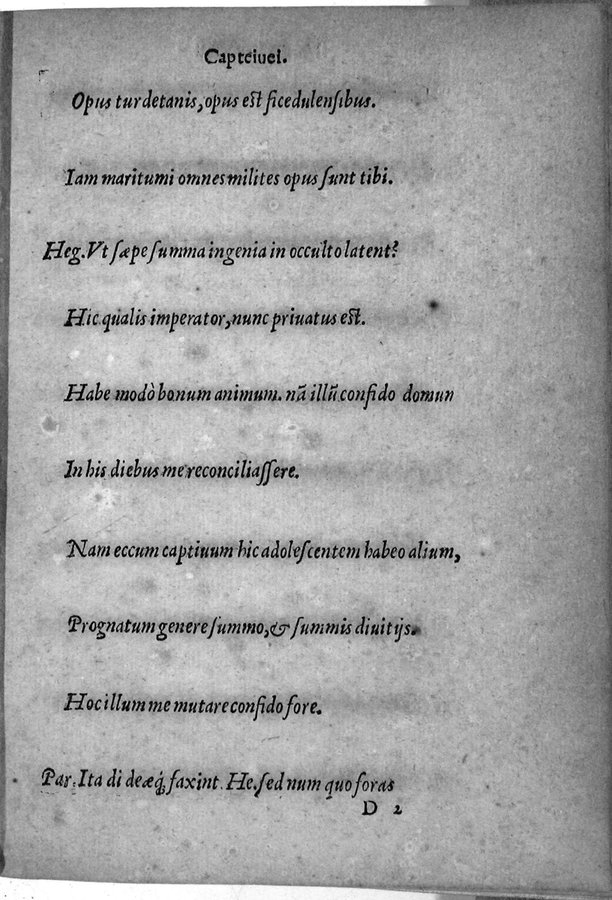 Capteiuei.
Opus turdetanis, opus est ficedulensibus.
Iam maritumi omnes milites opus sunt tibi.
Heg. Vt sæpe summa ingenia in occulto latent?
Hic qualis imperator, nunc priuatus est.
Habe modò bonum animum. nã illũ confido domun
In his diebus me reconciliassere.
Nam eccum captiuum hic adolescentem habeo alium,
Prognatum genere summo, & summis diuitijs.
Hoc illum me mutare confido fore.
Par. Ita di deæq́; faxint. He. sed num quo foras
D 2